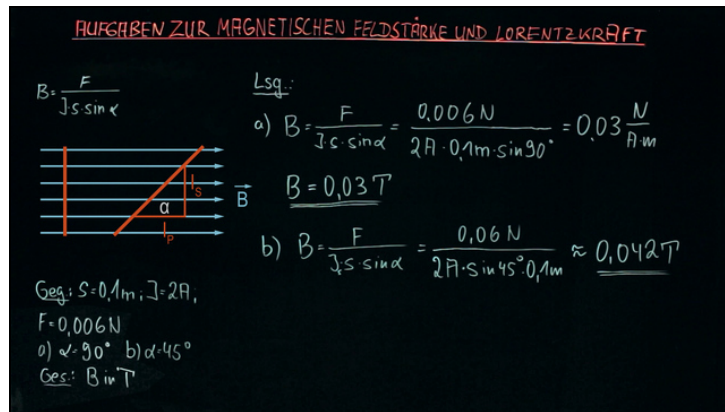 AUFGABEN ZUR MAGNETISCHEN FELDSTÄRKE UND LORENTZKRAFT
B = F / (I·s·sin α)
B⃗
I_s
α
I_p
Geg.: s=0,1m; I=2A;
F=0,006N
a) α=90° b) α=45°
Ges.: B in T
Lsg.:
a) B = F / (I·s·sinα) = 0,006N / (2A·0,1m·sin90°) = 0,03 N/(A·m)
B = 0,03T
b) B = F / (I·s·sinα) = 0,06N / (2A·sin45°·0,1m) ≈ 0,042T